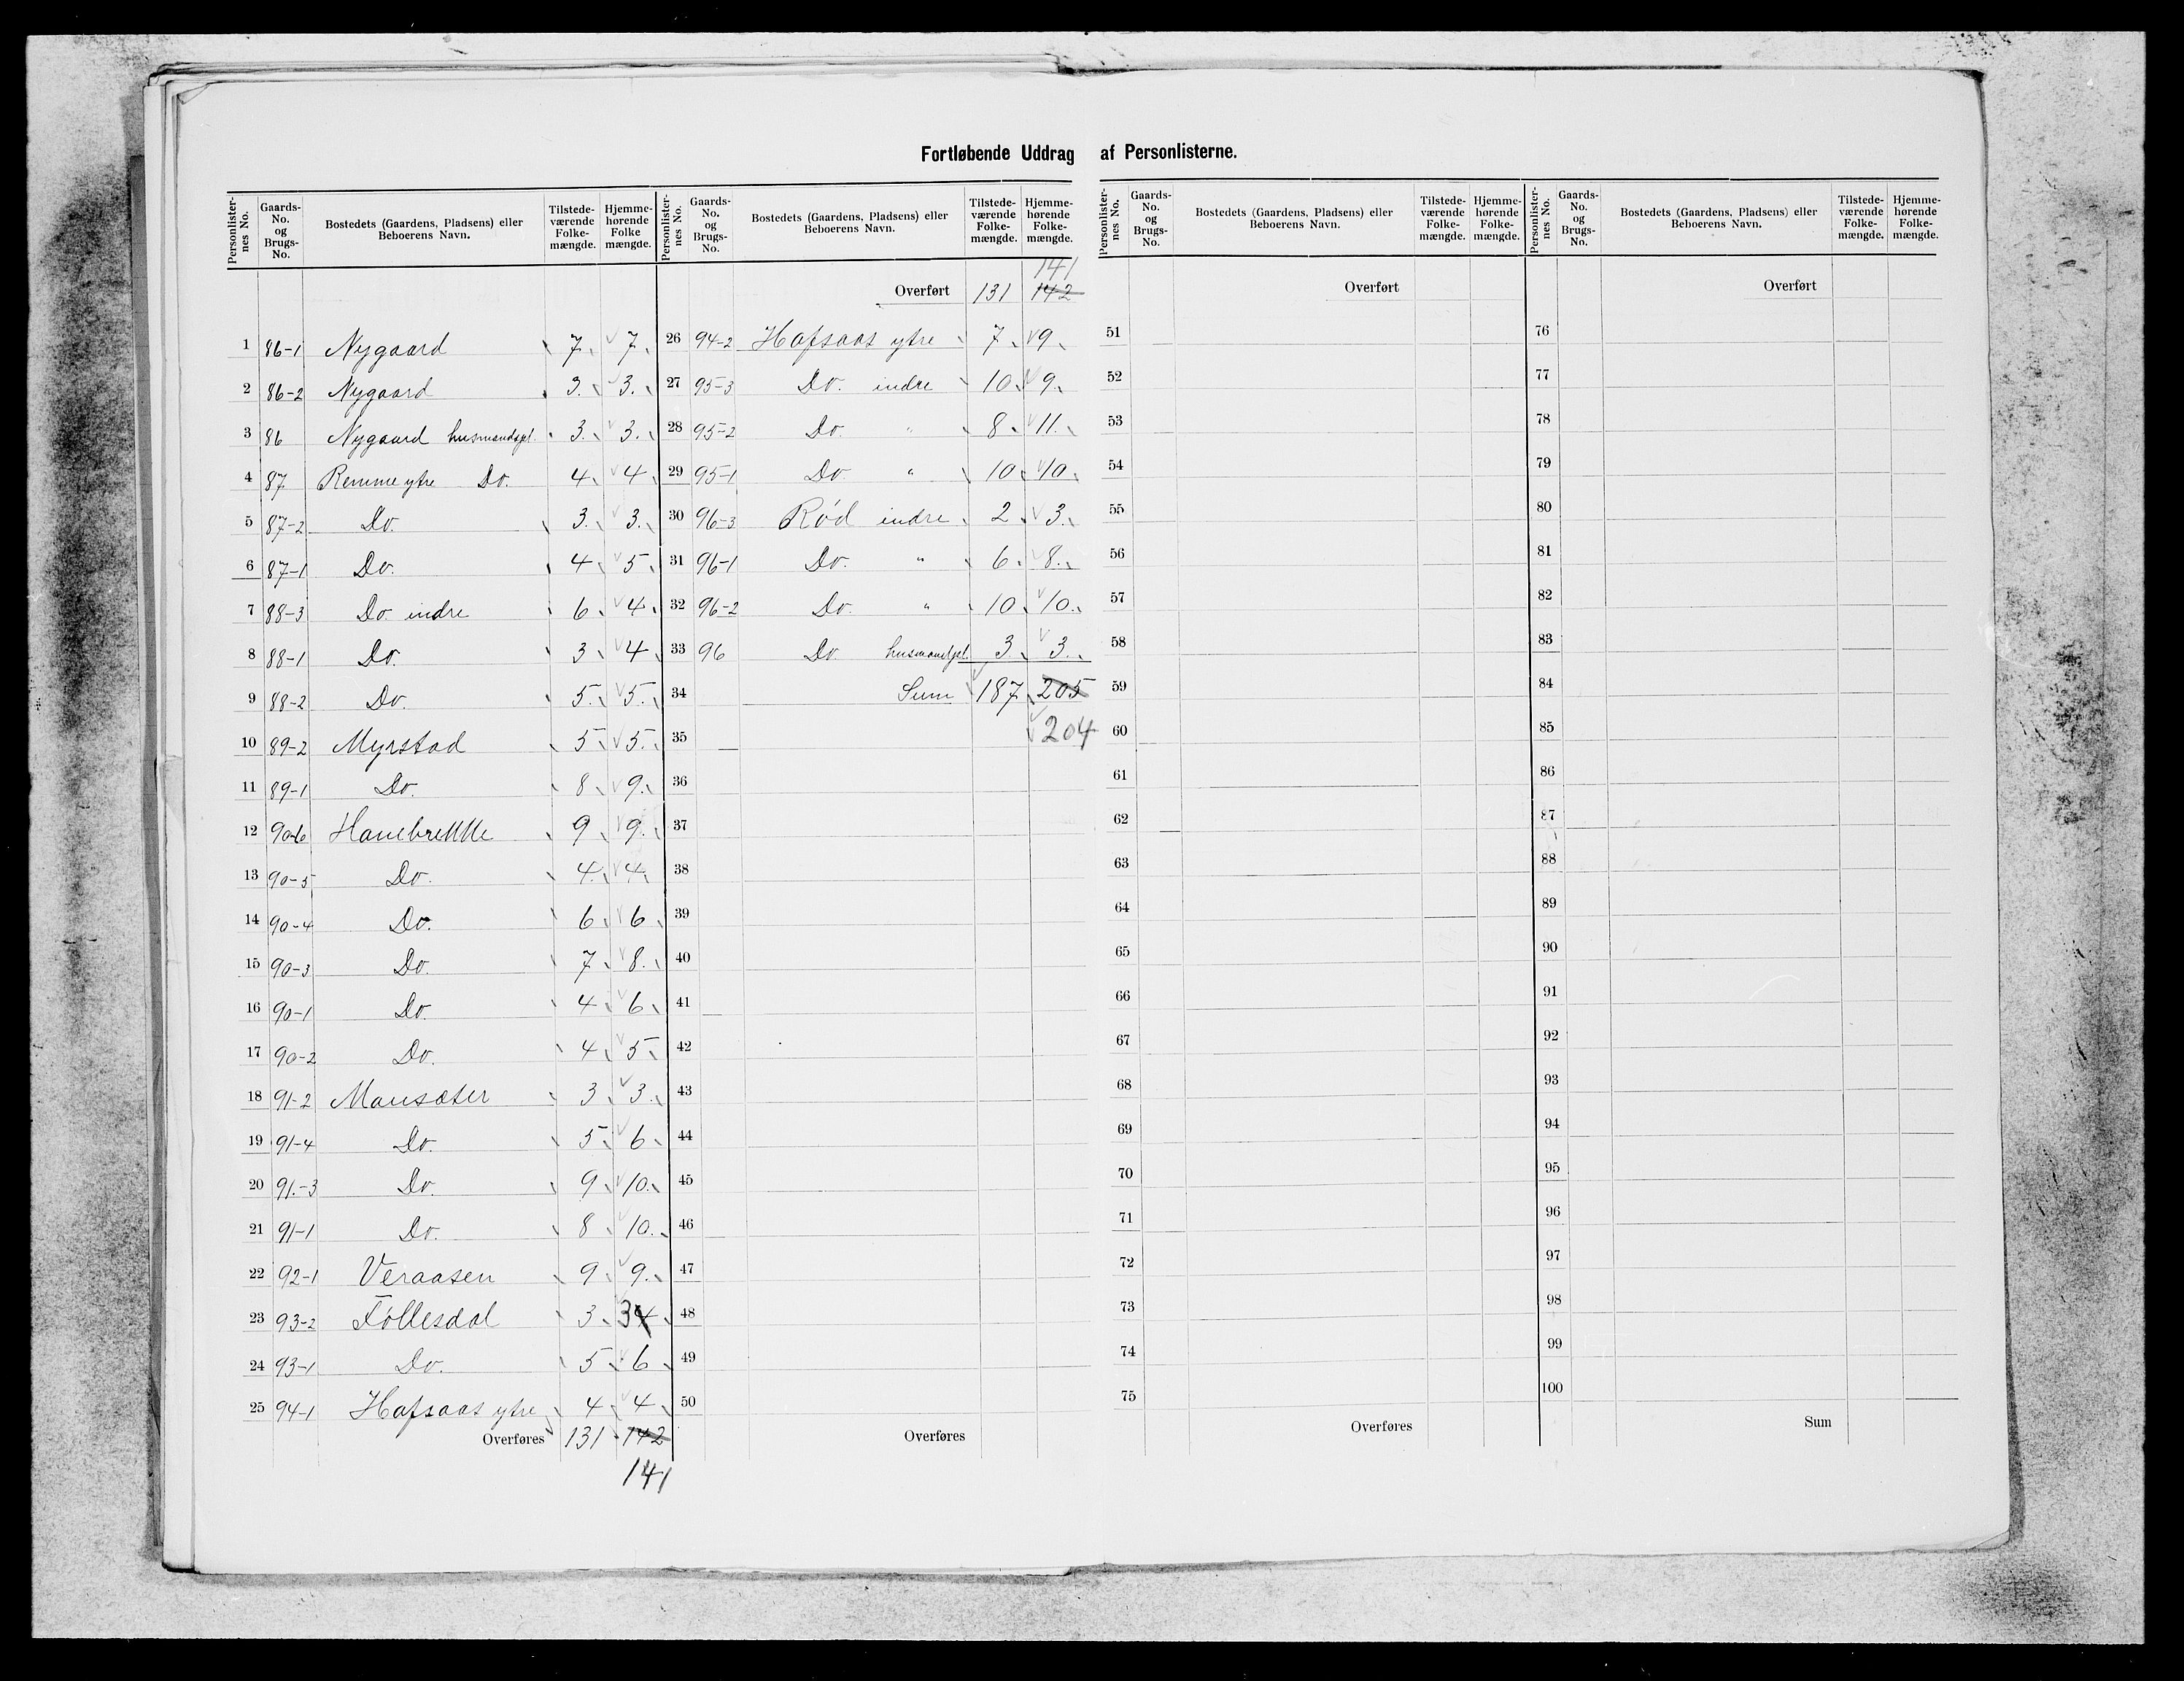 Fortløbende Uddrag af Personlisterne.
Personlister-nes No. | Gaards-No. og Brugs-No. | Bostedets (Gaardens, Pladsens) eller Beboerens Navn. | Tilstede-værende Folke-mængde. | Hjemme-hørende Folke mængde.
1 86-1 Nygaard 7 7
2 86-2 Nygaard 3 3
3 86 Nygaard husmandspl. 3 3
4 87 Remme ytre Do. 4 4
5 87-2 Do. 3 3
6 87-1 Do. 4 5
7 88-3 Do indre 6 4
8 88-1 Do. 3 4
9 88-2 Do. 5 5
10 89-2 Myrstad 5 5
11 89-1 Do. 8 9
12 90-6 Hanebrekke 9 9
13 90-5 Do. 4 4
14 90-4 Do. 6 6
15 90-3 Do. 7 8
16 90-1 Do. 4 6
17 90-2 Do. 4 5
18 91-2 Mansæter 3 3
19 91-4 Do. 5 6
20 91-3 Do. 9 10
21 91-1 Do. 8 10
22 92-1 Veraasen 9 9
23 93-2 Föllesdal 3 3 4
24 93-1 Do. 5 6
25 94-1 Hafsaas ytre 4 4
Overføres 131 142
141
Personlister-nes No. | Gaards-No. og Brugs-No. | Bostedets (Gaardens, Pladsens) eller Beboerens Navn. | Tilstede-værende Folke-mængde. | Hjemme-hørende Folke-mængde.
141
Overført 131 142
26 94-2 Hafsaas ytre 7 9
27 95-3 Do. indre 10 9
28 95-2 Do. " 8 11
29 95-1 Do. " 10 10
30 96-3 Rød indre 2 3
31 96-1 Do. " 6 8
32 96-2 Do. " 10 10
33 96 Do husmandspl. 3 3
34 Sum 187 205
35 204
36
37
38
39
40
41
42
43
44
45
46
47
48
49
50
Overføres
Personlister-nes No. | Gaards-No. og Brugs-No. | Bostedets (Gaardens, Pladsens) eller Beboerens Navn. | Tilstede-værende Folke-mængde. | Hjemme-hørende Folke-mængde.
Overført
51
52
53
54
55
56
57
58
59
60
61
62
63
64
65
66
67
68
69
70
71
72
73
74
75
Overføres
Personlister-nes No. | Gaards-No. og Brugs-No. | Bostedets (Gaardens, Pladsens) eller Beboerens Navn. | Tilstede-værende Folke-mængde. | Hjemme-hørende Folke-mængde.
Overført
76
77
78
79
80
81
82
83
84
85
86
87
88
89
90
91
92
93
94
95
96
97
98
99
100
Sum